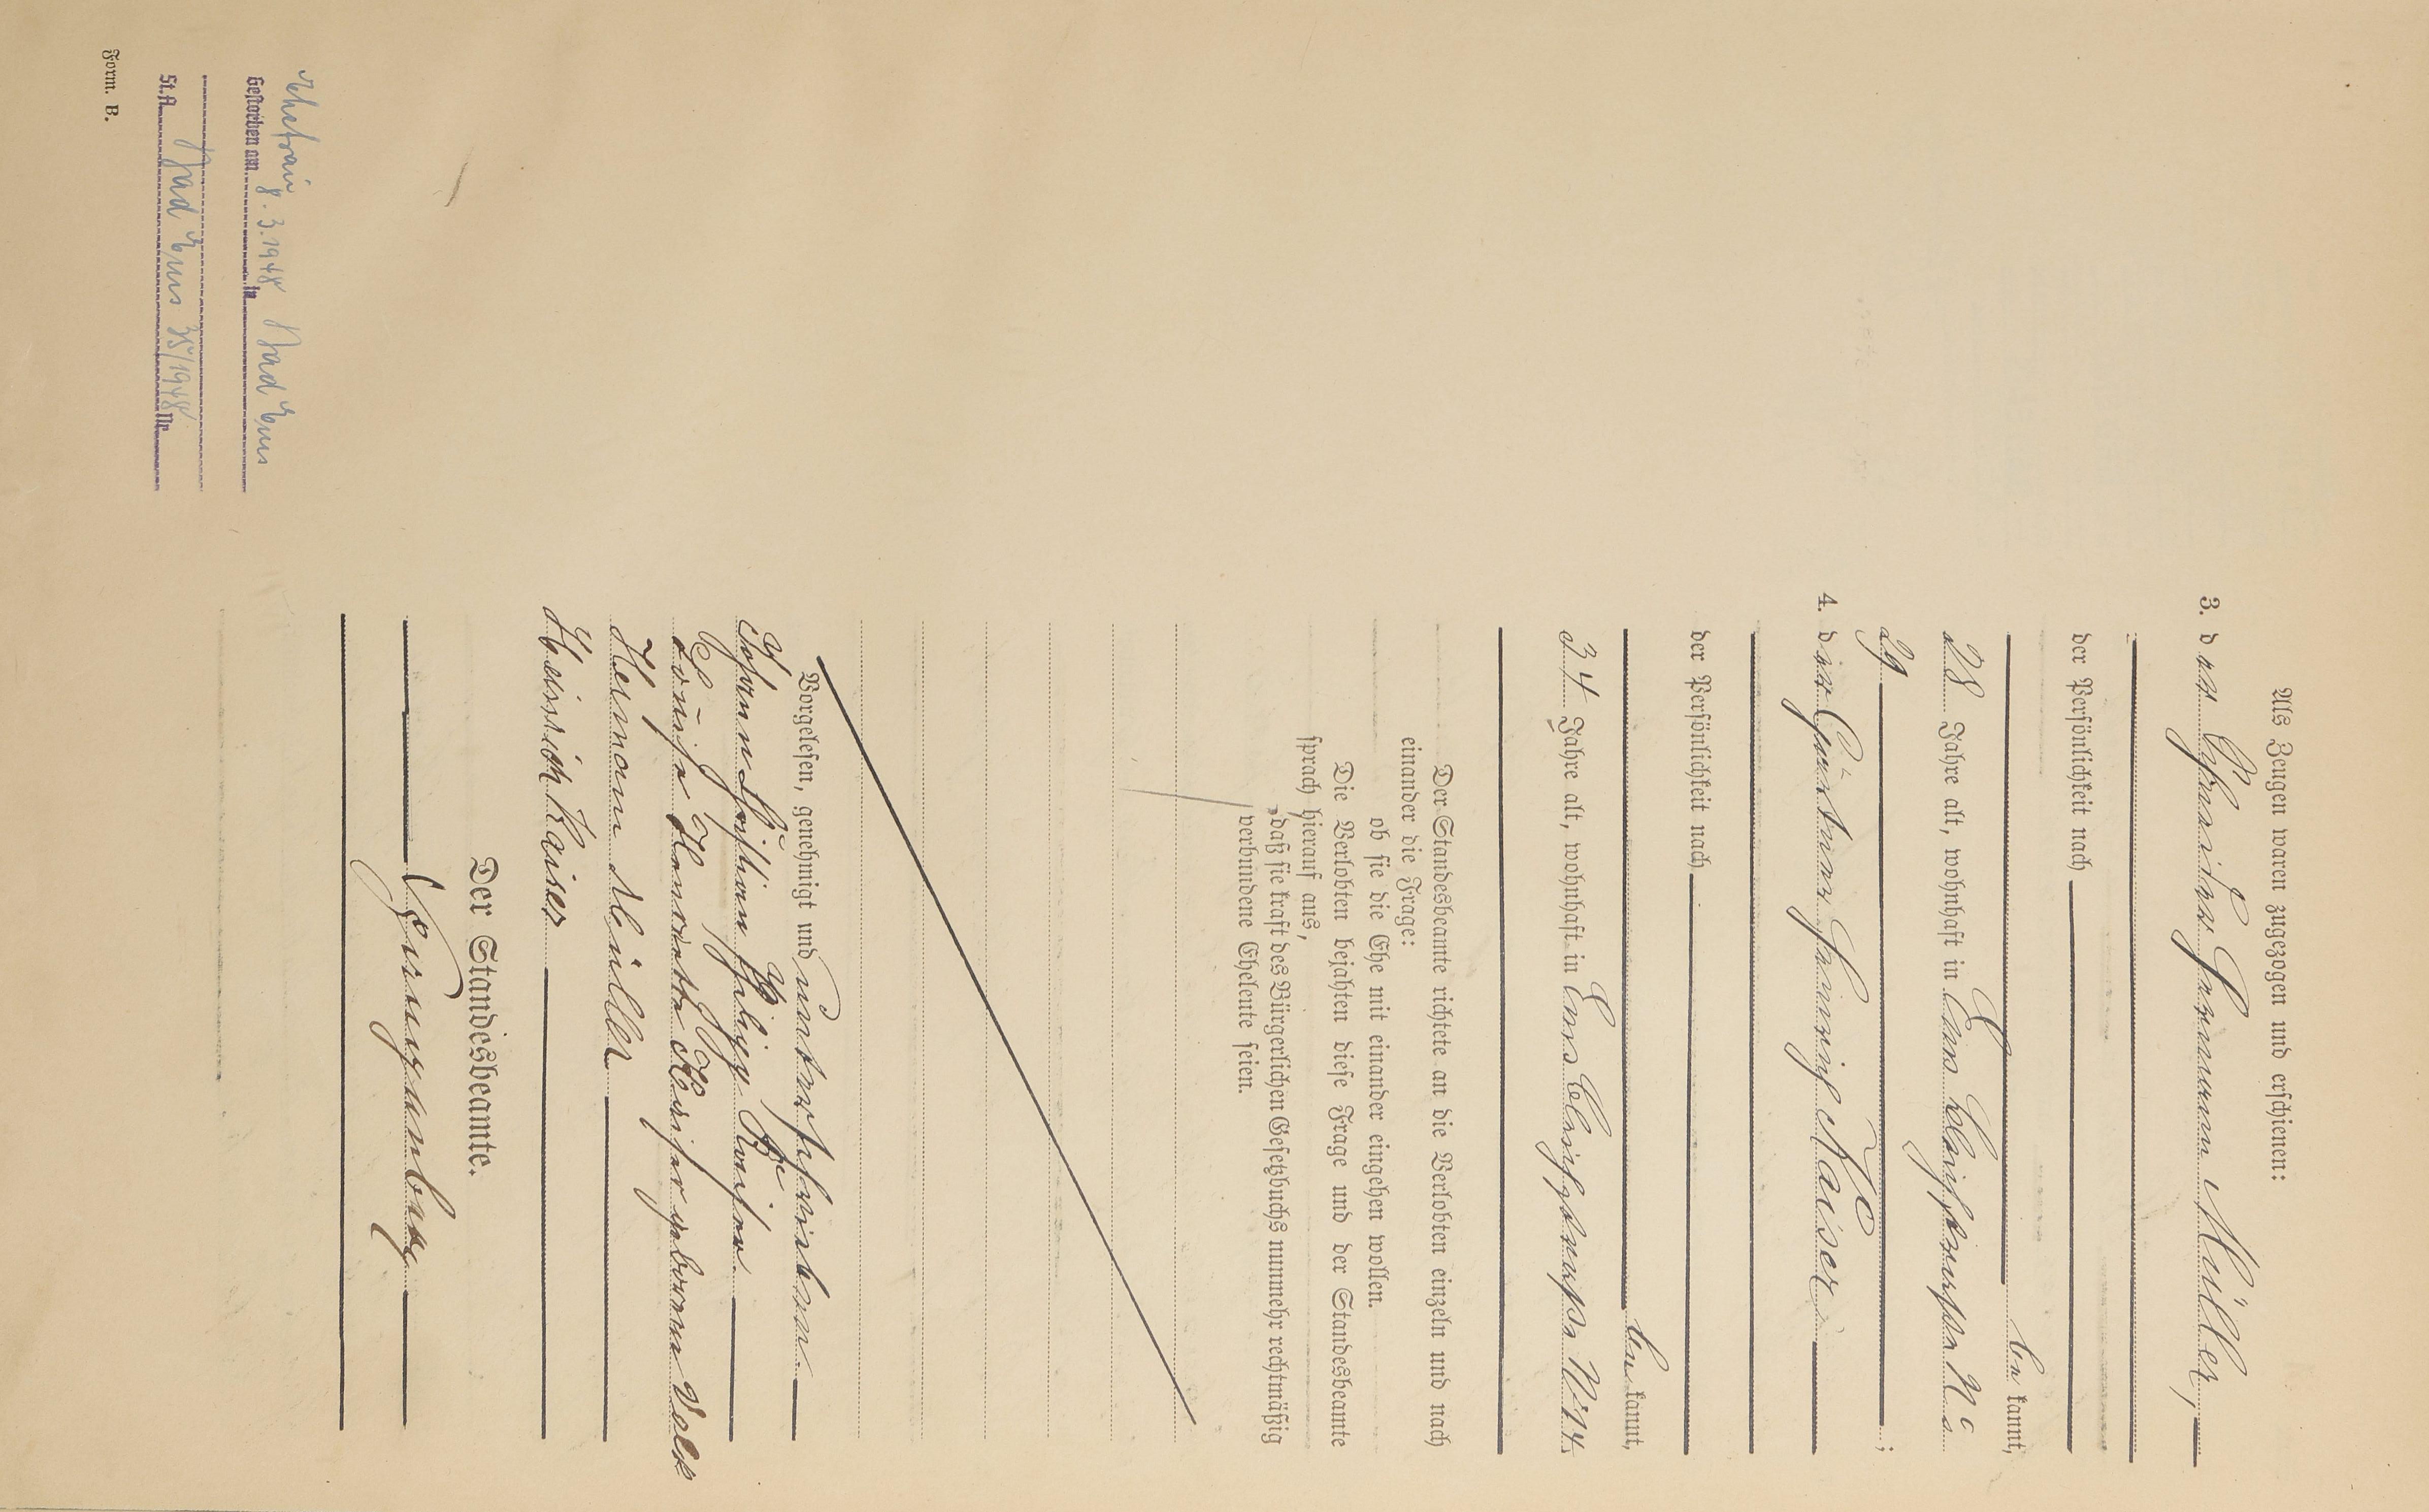 Als Zeugen waren zugezogen und erschienen:
3. der Schneider Hermann Müller,
der Persönlichkeit nach
be kannt,
28 Jahre alt, wohnhaft in Ems Bleichstraße No
29 ;
4. der Gärtner Heinrich Kaiser
der Persönlichkeit nach
be kannt,
34 Jahre alt, wohnhaft in Ems Bleichstraße No 14.
Der Standesbeamte richtete an die Verlobten einzeln und nach
einander die Frage:
ob sie die Ehe mit einander eingehen wollen.
Die Verlobten bejahten diese Frage und der Standesbeamte
sprach hierauf aus,
daß sie kraft des Bürgerlichen Gesetzbuchs nunmehr rechtmäßig
verbundene Eheleute seien.
Vorgelesen, genehmigt und unterschrieben
Johann Philipp Kaiser
Louise Henriette Kaiser geborene Volk
Hermann Müller
Heinrich Kaiser
Der Standesbeamte.
Ehefrau
Gestorben am 8.3.1948 in Bad Ems
St.A. Bad Ems 35/1948 Nr.
Form. B.